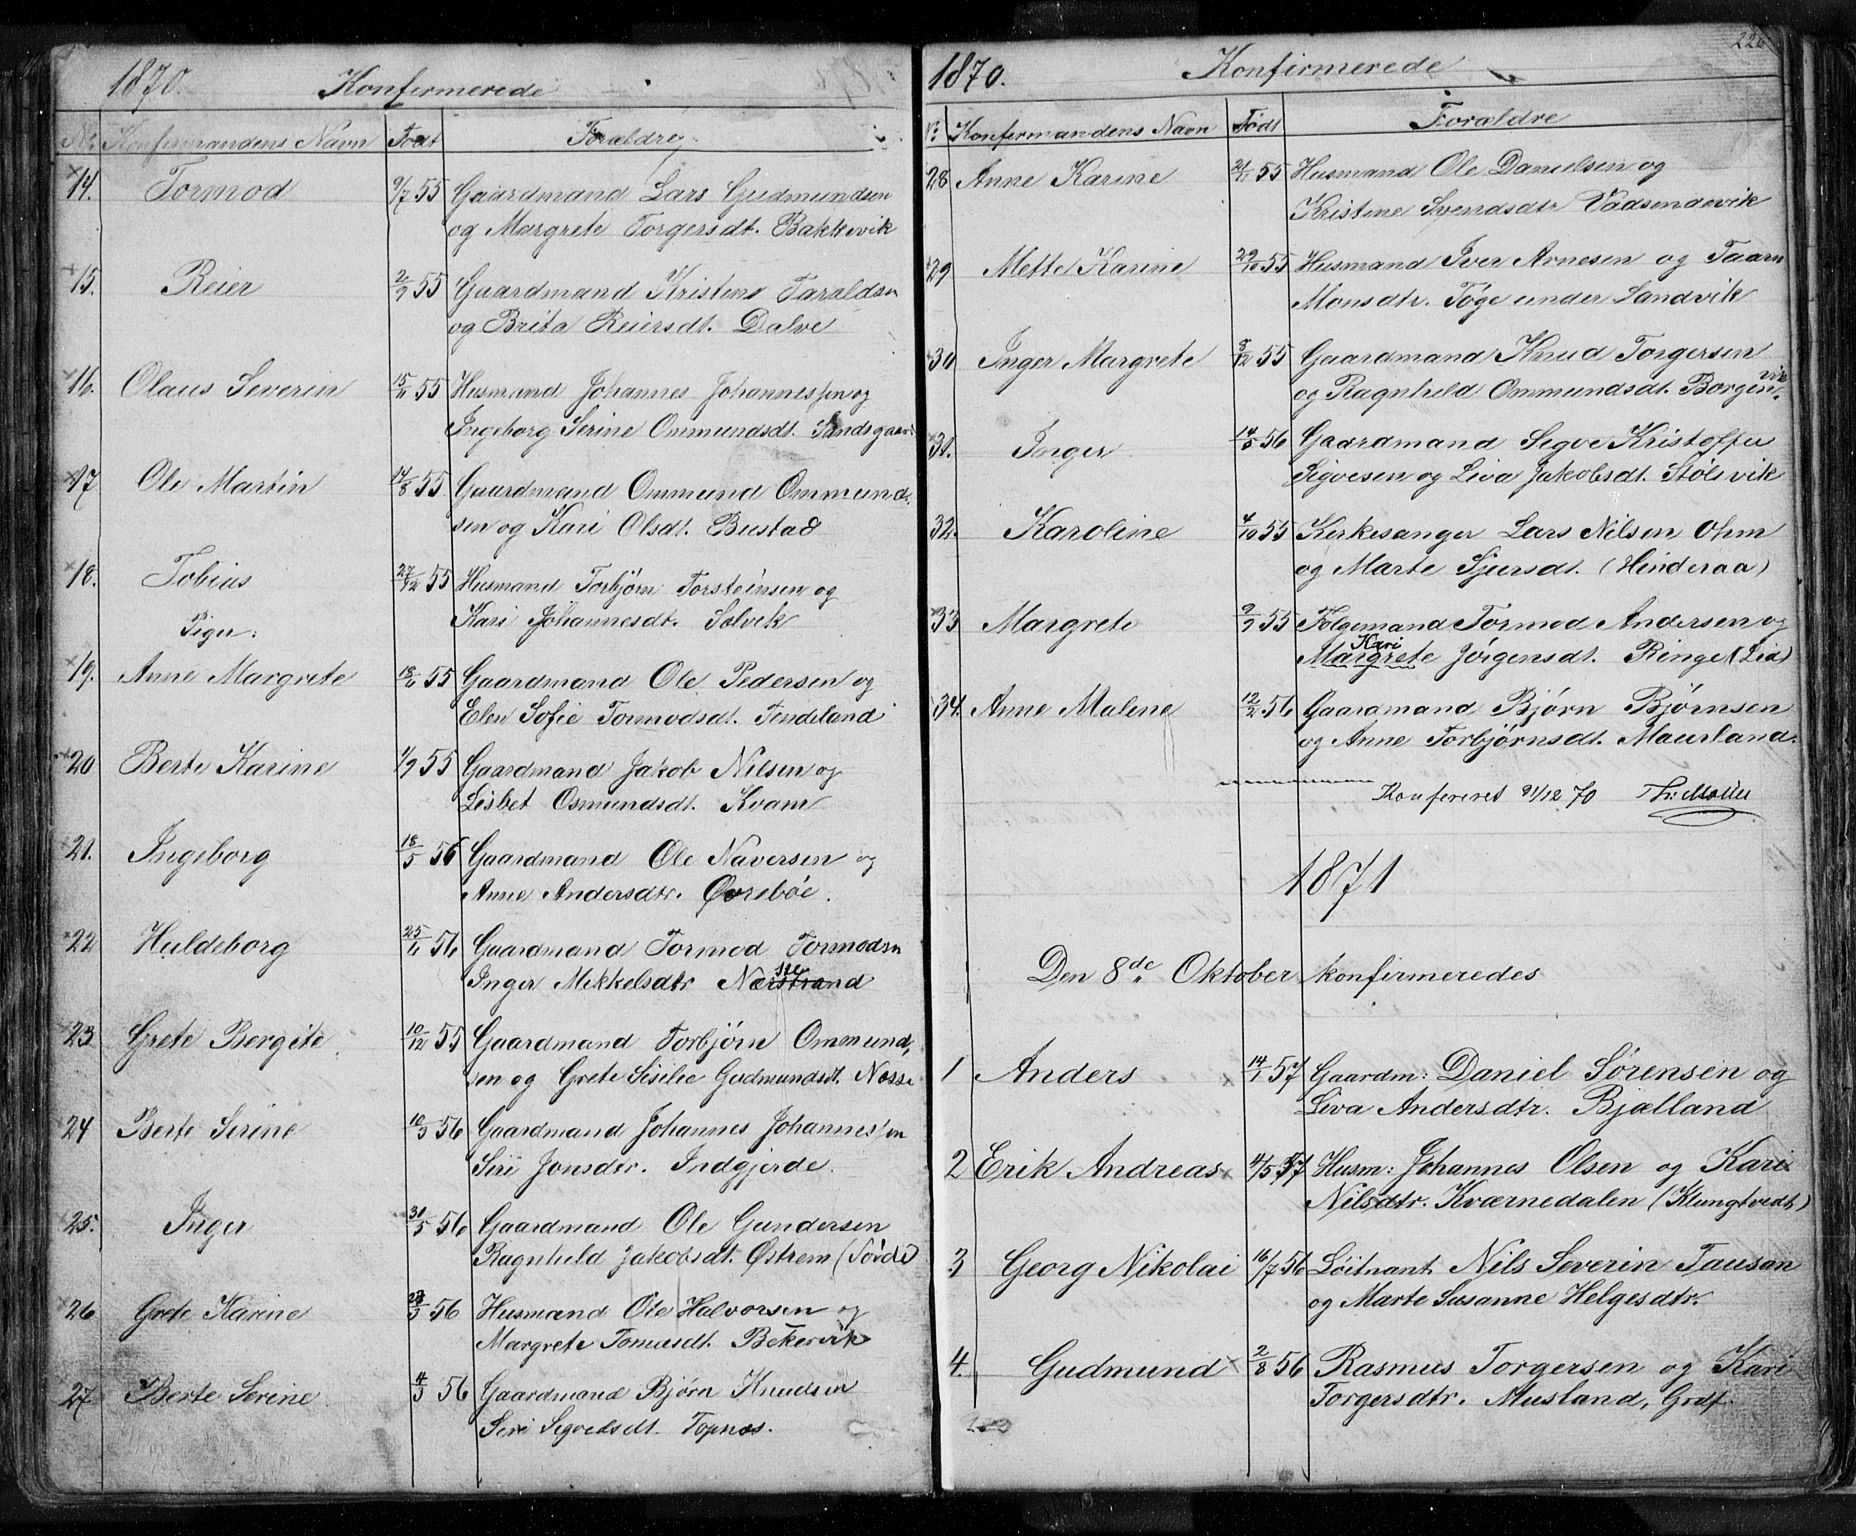 1870. Konfirmerede
No Konfirmandens Navn Født Forældre
14. Tormod 9/7 55 Gaardmand Lars Gudmundsen
og Margrete Torgersdt. Bakkevik
15. Reier 2/9 55 Gaardmand Kristens Taraldsen
og Brita Reiersdt. Dalve
16. Olaus Severin 15/11 55 Husmand Johannes Johannessen og
Ingeborg Serine Ommundsdt. Sandsgaar
17 Ole Martin 14/8 55 Gaardmand Ommund Ommund,
sen og Kari Olsdt. Bustad
18. Tobius 27/12 55 Husmand Torbjørn Torsteinsen og
Kari Johannesdt. Solvik
Piger:
19. Anne Margrete 55 Gaardmand Ole Pedersen og
Elen Sofie Tormodsdt. Tendeland
20 Berte Karine 1/9 55 Gaardmand Jakob Nilsen og
Lisbet Osmundsdt. Kvam
21. Ingeborg 18/5 56 Gaardmand Ole Naversen og
Anne Andersdtr. Øvrebøe.
22 Huldeborg 56 Gaardmand Tormod Tormodsn
Inger Mikkelsdtr Nærstrand
23 Grete Bergite 10/12 55 Gaardmand Torbjørn Ommund,
sen og Grete Siselie Gudmundsdt.
24 Berte Serine 10/5 56 Gaardmand Johannes Johannessen
Siri Jonsdtr. Indgjerde.
25. Inger 31/5 56 Gaardmand Ole Gundersen
Ragnhild Jakobsdt. Østrem (Tøvde)
26 Grete Karine 56 Husmand Ole Halvorsen og
Margrete Tomasdt. Bekervik
27. Berte Serine 4/3 56 Gaardmand Bjørn Knudsen
Siri Segvelsdt. Topnæs.
1870. Konfirmerede
No Konfirmandens Navn Født Forældre
28 Anne Karine 21/11 55 Husmand Ole Danielsen og
Kristine Svendsdtr. Vadsendevik
29 Mette Karine 29/10 55 Husmand Iver Arnesen og Taarn
Monsdtr. Tøge under Sandvik
30 Inger Margrete 8/12 55 Gaardmand Knud Torgersen
og Ragnheld Ommundsdt. Borgen
vik
31. Inger 14/5 56 Gaardmand Segve Kristoffer
Sigvesen og Liva Jakobsdt. Stølsvik
32. Karoline 4/10 55 Kirkesanger Lars Nilsen Ohm
og Marte Sjursdt. (Hinderaa)
33 Margrete 9/9 55 Følgemand Tormod Andersen og
Kari
Margrete Jørgensdt. Ringe (Lid)
34. Anne Malene 12/2 56 Gaardmand Bjørn Bjørnsen
og Anne Torbjørnsdt. Maurland.
Konfereret 31/12 70
1871
Den 8de Oktober konfirmeredes
1 Anders 14/1 57 Gaardm: Daniel Sørensen og
Liva Andersdtr. Bjælland
2 Erik Andreas 4/5 57 Husm: Johannes Olsen og Kari
Nilsdtr. Kværnedalen (Klungtvedt)
3 Georg Nikolai 16/7 56 Løitnant Nils Severin Tausan
og Marte Susanne Helgesdtr.
4. Gudmund 2/8 56 Rasmus Torgersen og Kari
Torgersdtr. Musland, Grdf.